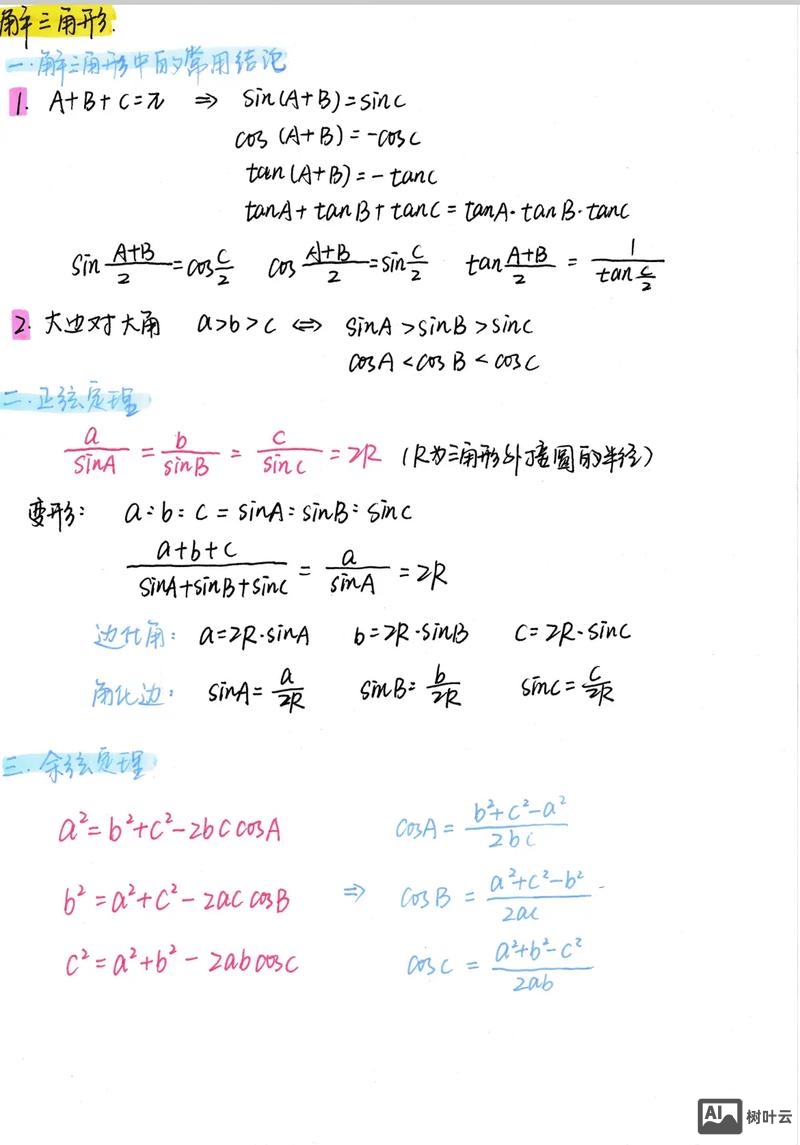 解三角形.
一.解三角形中的常用结论
1. A+B+C=π ⇒ sin(A+B)=sinC
cos(A+B)=-cosC
tan(A+B)=-tanC
tanA+tanB+tanC=tanA·tanB·tanC
sin (A+B)/2 = cos C/2 cos (A+B)/2 = sin C/2 tan (A+B)/2 = 1/(tan C/2)
2. 大边对大角 a>b>c ⇔ sinA>sinB>sinC
cosA<cosB<cosC
二.正弦定理
a/sinA = b/sinB = c/sinC = 2R (R为三角形外接圆的半径)
变形: a:b:c=sinA:sinB:sinC
(a+b+c)/(sinA+sinB+sinC) = a/sinA = 2R
边化角: a=2R·sinA b=2R·sinB c=2R·sinC
角化边: sinA=a/2R sinB=b/2R sinC=c/2R
三.余弦定理
a²=b²+c²-2bccosA cosA=(b²+c²-a²)/2bc
b²=a²+c²-2accosB ⇒ cosB=(a²+c²-b²)/2ac
c²=a²+b²-2abcosC cosC=(a²+b²-c²)/2ab
AI 树叶云